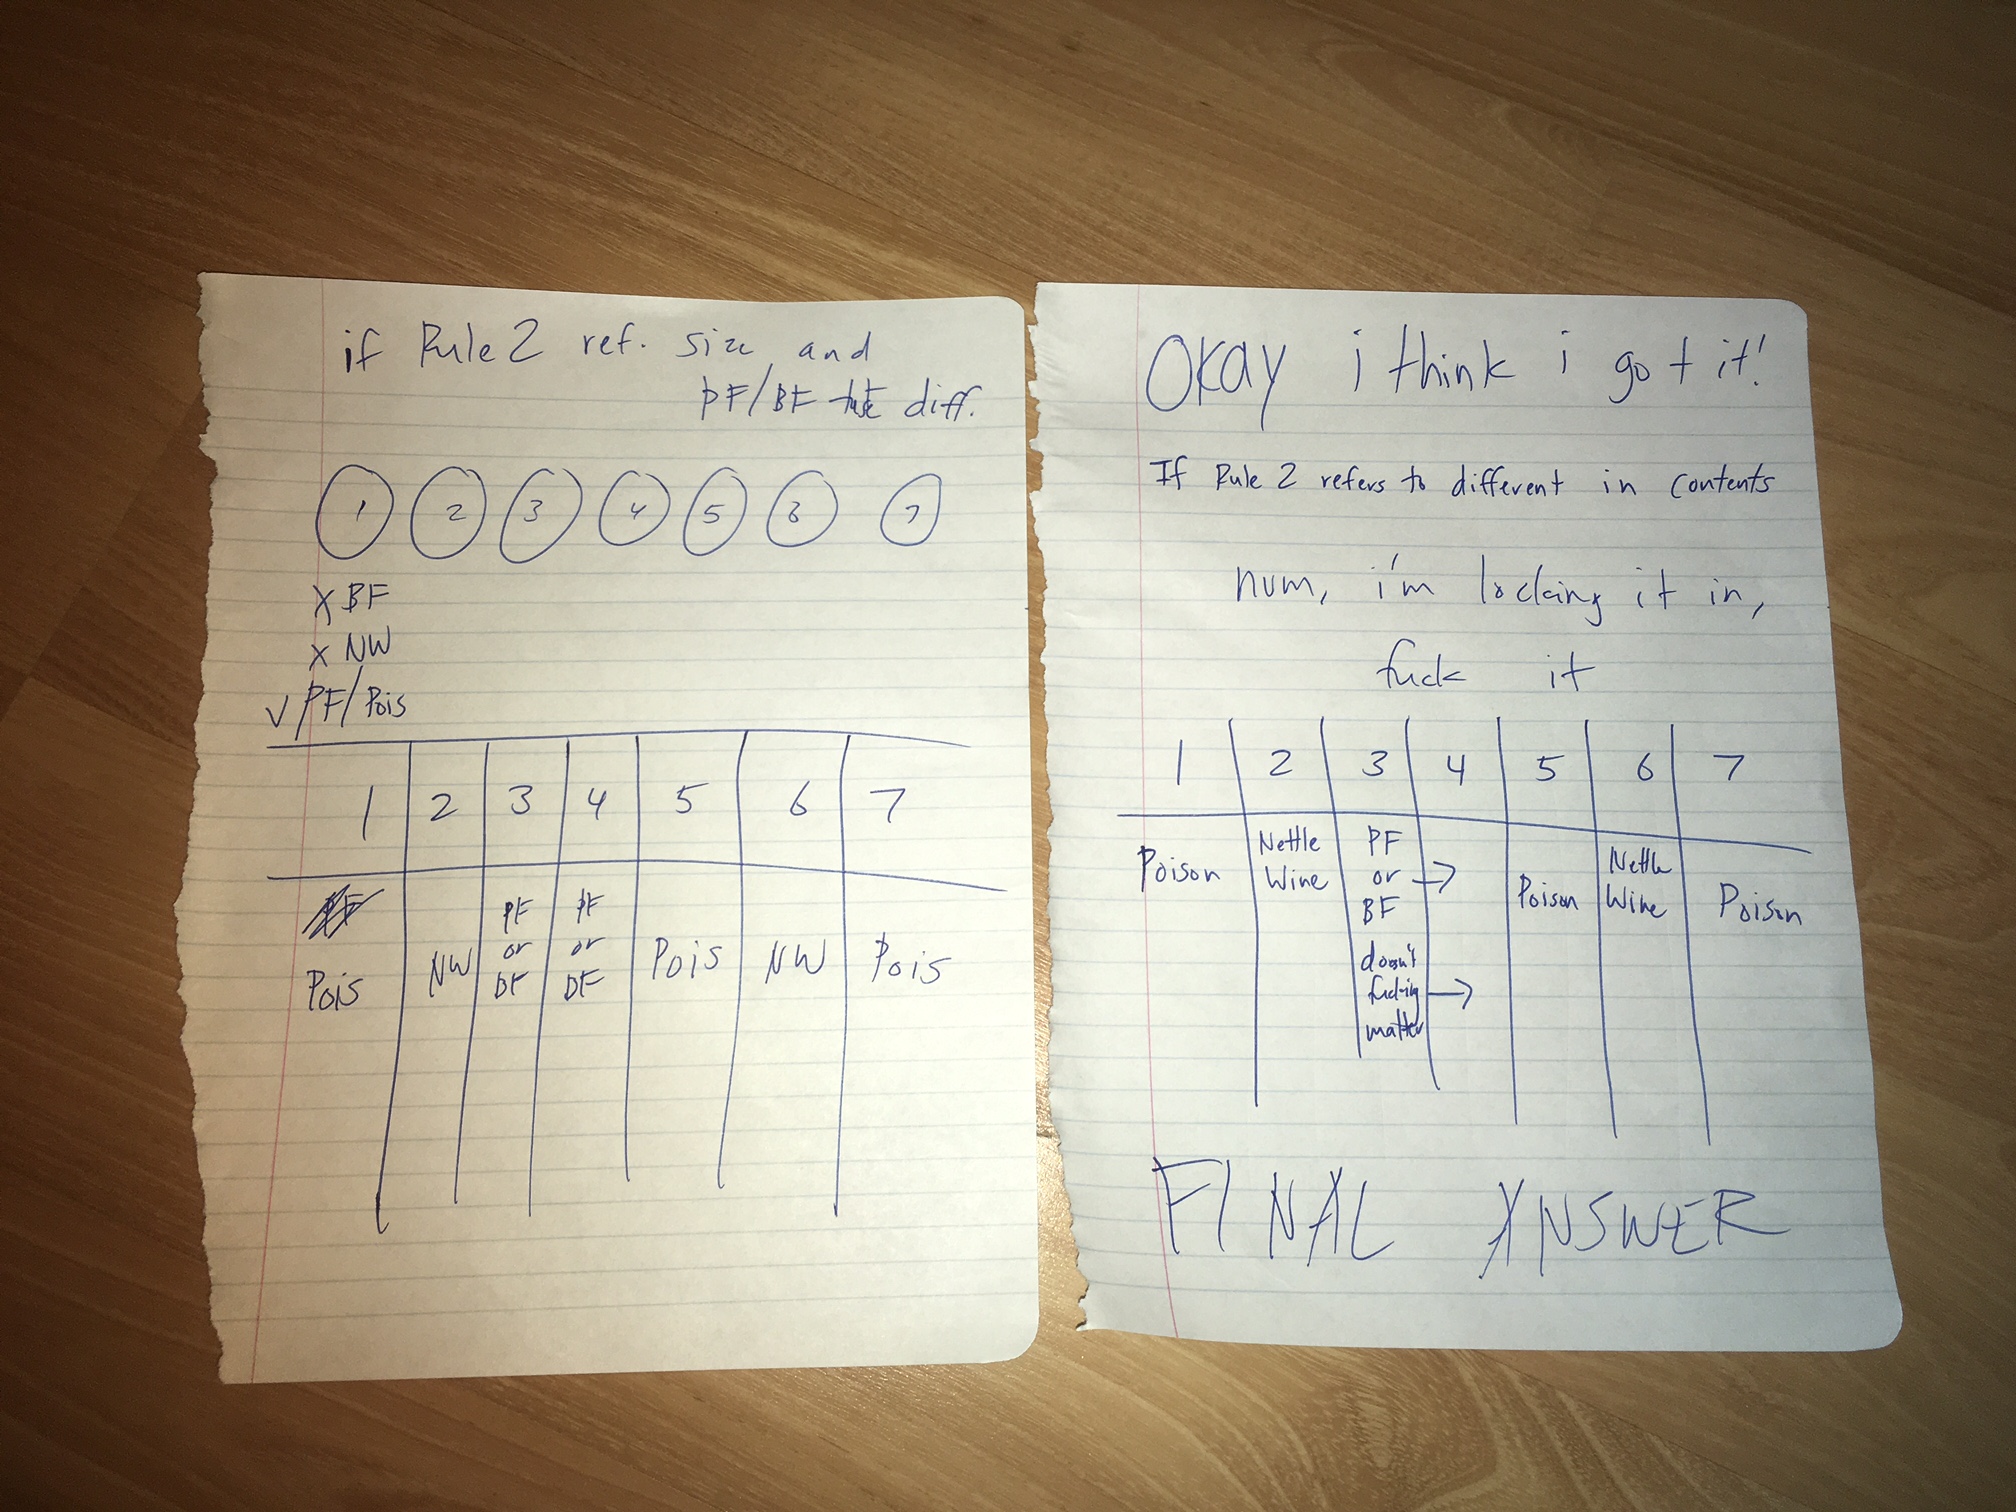 if Rule 2 ref. size and
PF/BF diff.
1 2 3 4 5 6 7
X BF
X NW
✓ PF/Pois
1 2 3 4 5 6 7
Pois NW PF or BF PF or BF Pois NW Pois
Okay i think i got it!
If Rule 2 refers to different in contents
num, i'm locking it in,
fuck it
1 2 3 4 5 6 7
Poison Nettle Wine PF or BF → Poison Nettle Wine Poison
doesn't fucking matter →
FINAL ANSWER